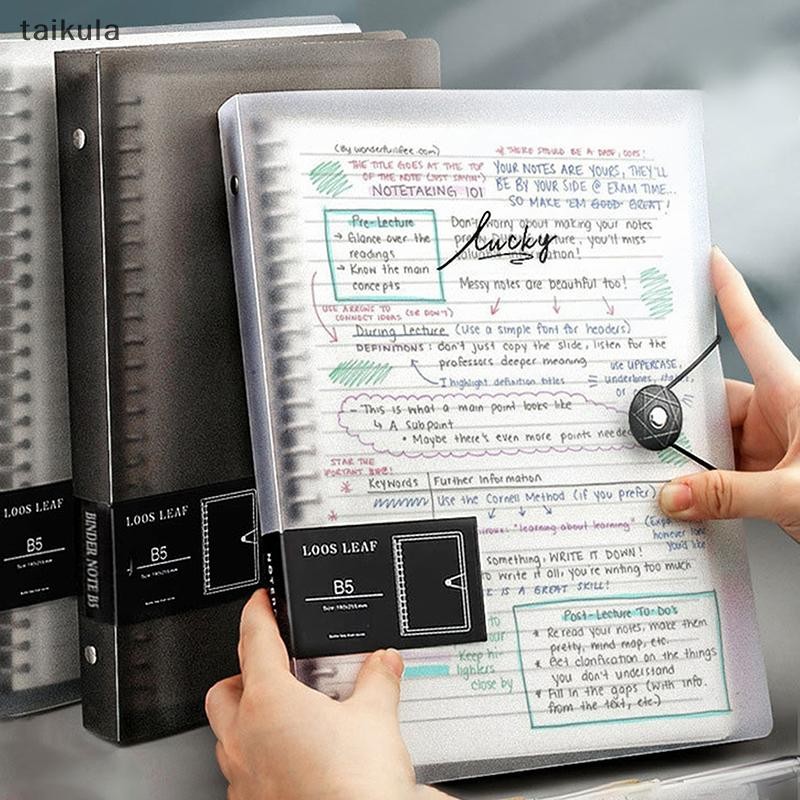 taikula
(By wonderfulifee.com)
* THERE SHOULD BE A DATE, OOPS!
THE TITLE GOES AT THE TOP
OF THE NOTE (JUST SAYIN')
NOTETAKING 101
YOUR NOTES ARE YOURS, THEY'LL
BE BY YOUR SIDE @ EXAM TIME...
SO MAKE 'EM GOOD GREAT!
Pre-Lecture
→ Glance over the
readings
→ Know the main
concepts
Don't worry about making your notes
pretty, you'll miss
lucky
Messy notes are beautiful too!
USE ARROWS TO
CONNECT IDEAS (OR DON'T)
During Lecture (use a simple font for headers)
DEFINITIONS: don't just copy the slide, listen for the
professors deeper meaning
I highlight definition titles
use UPPERCASE,
underlines,
or
- This is what a main point looks like
↳ A Subpoint
• Maybe there's even more points needed
STAR THE
IMPORTANT
Keywords
Further Information
Use the Cornell Method (if you prefer)
"learning about learning"
however long
you'd like
something, WRITE IT DOWN!
to write it all, you're writing too much
IS A GREAT SKILL!
Keep hi-
lighters
close by
Post-Lecture To-Do's
* Reread your notes, make them
pretty, mind map, etc.
* Get clarification on the things
you don't understand
* Fill in the gaps (with info.
from the text, etc.)
LOOS LEAF
B5
BINDER NOTE B5
LOOS LEAF
B5
LOOS LEAF
B5